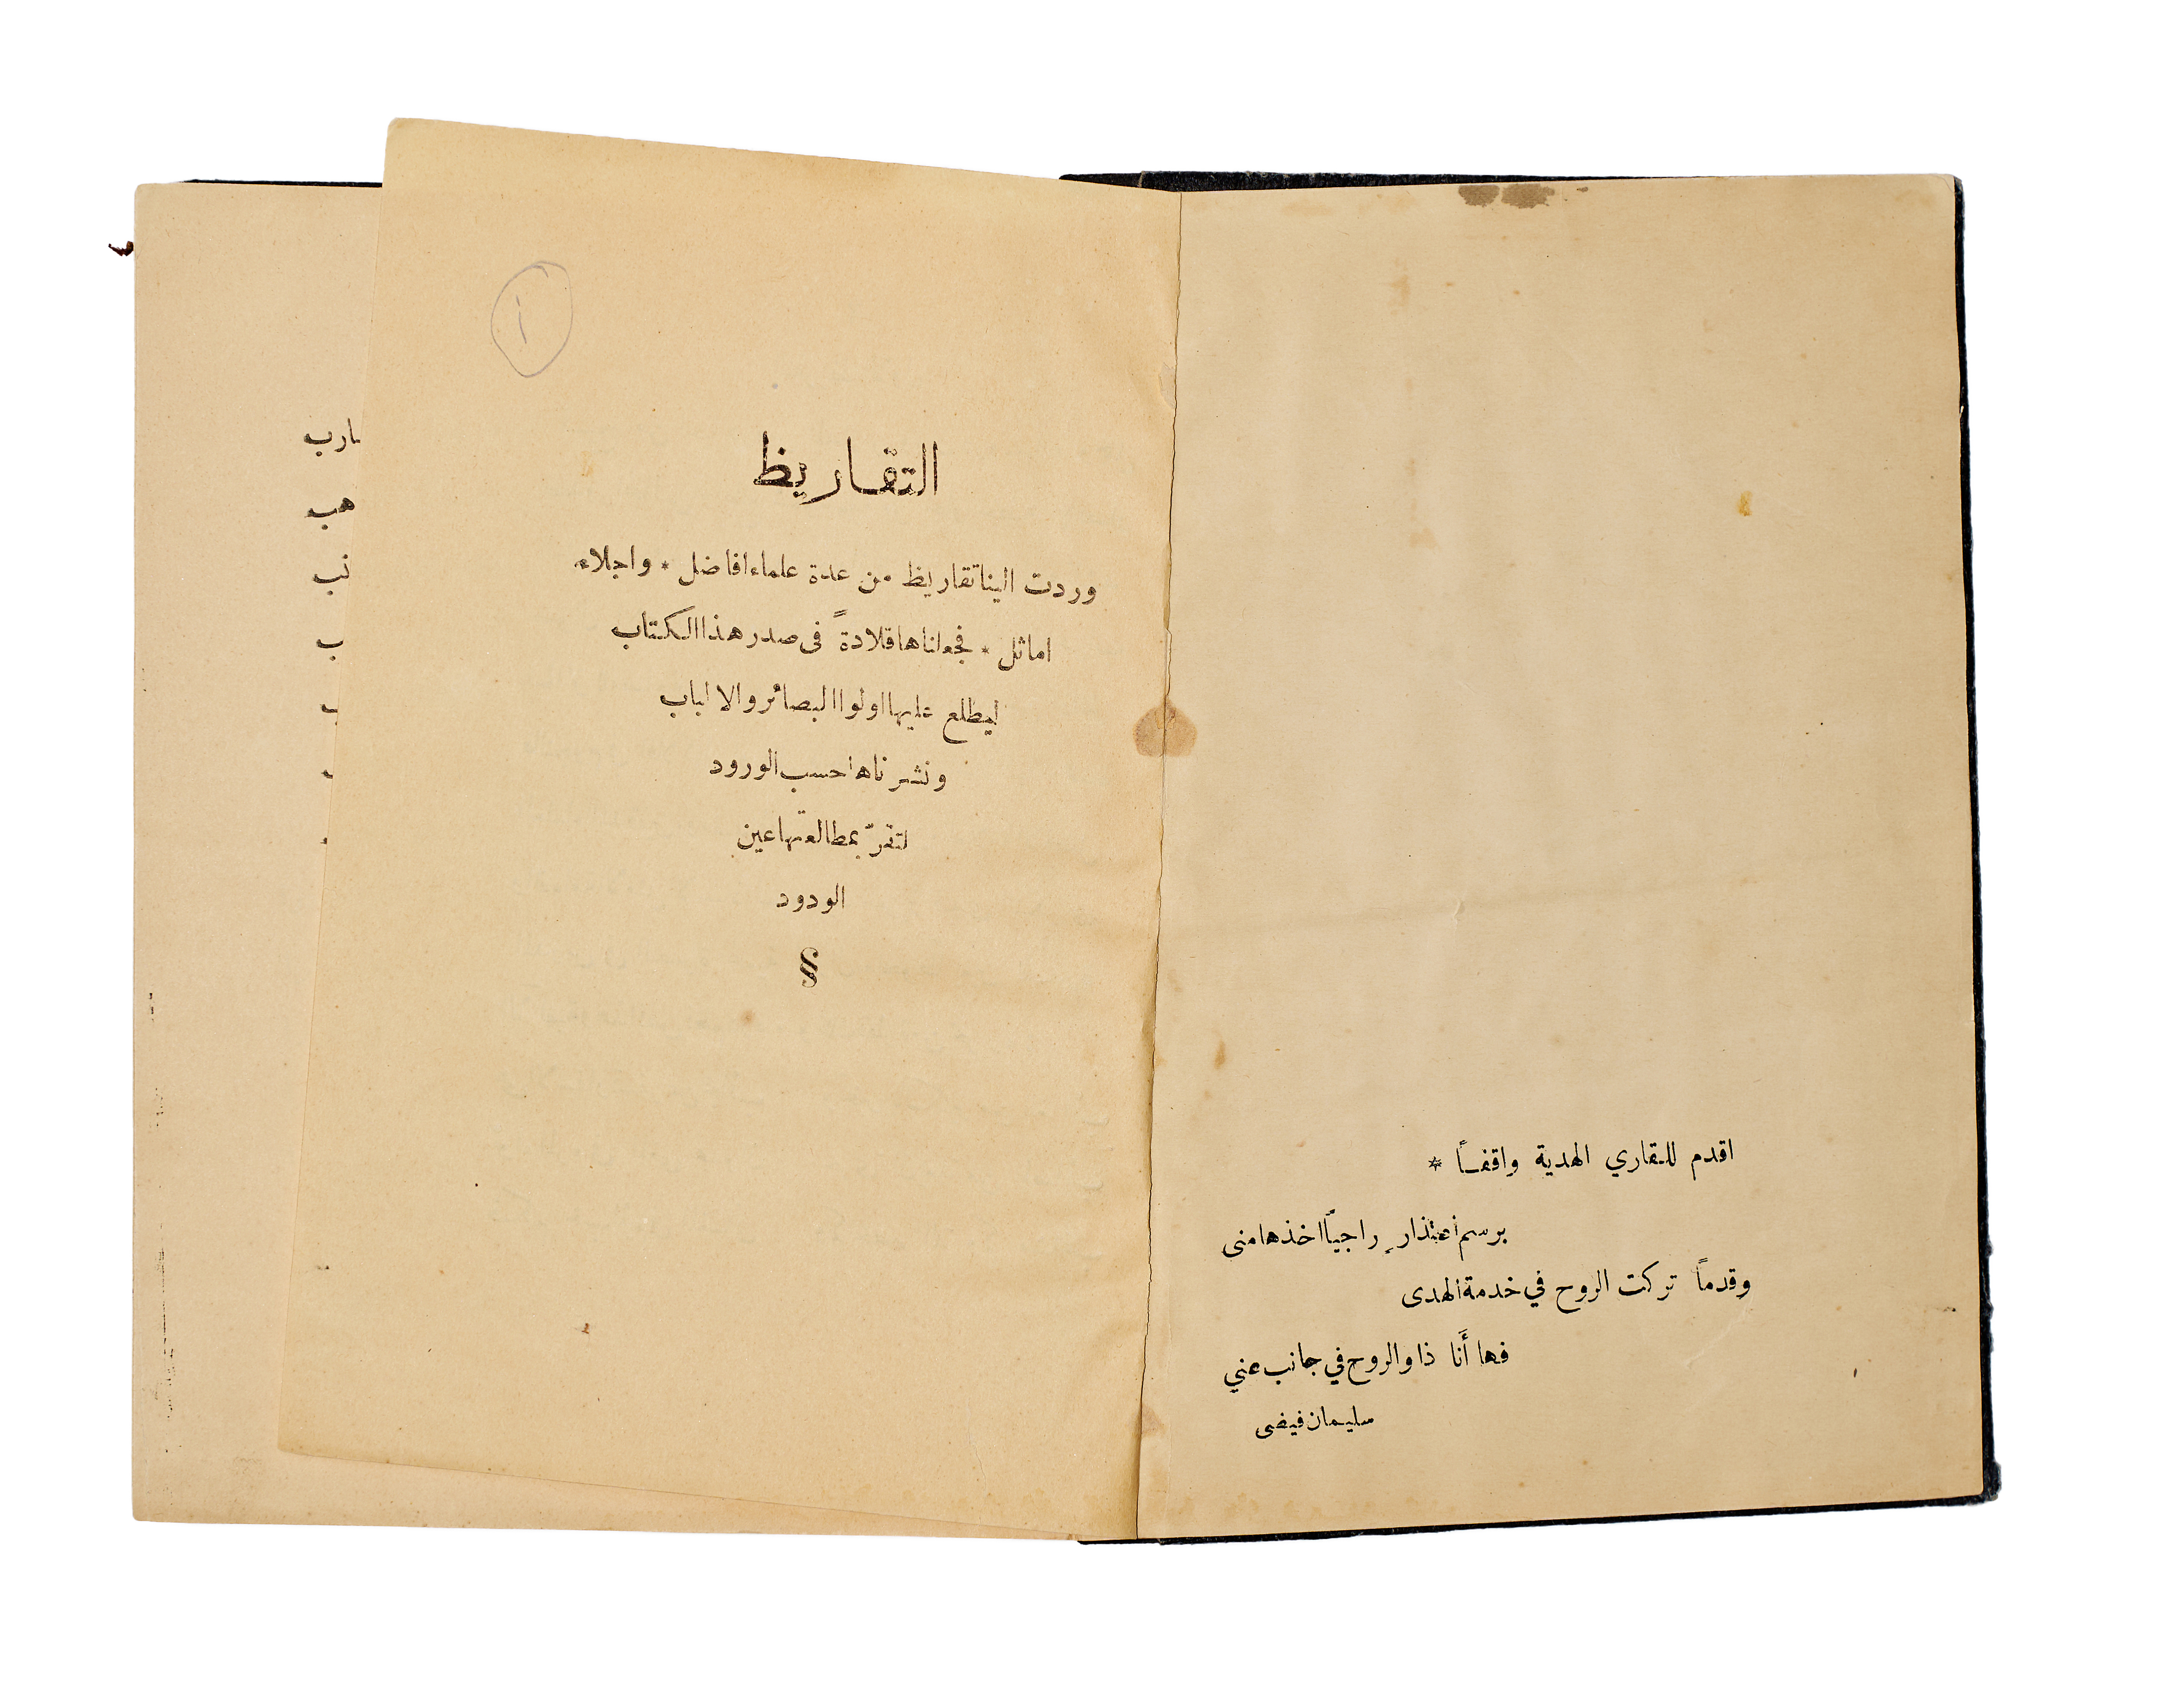 اقدم للقاري الهدية واقفاً *
برسم اعتذارٍ راجياً اخذها منى
وقدماً تركت الروح في خدمة الهدى
فها أَنا ذا والروح في جانب عني
سليمان فيضى
أ
التقاريظ
وردت الينا تقاريظ من عدة علماء افاضل * واجلاء
اماثل * فجعلناها قلادةً فى صدر هذا الكتاب
ليطلع عليها اولوا البصائر والالباب
ونشرناها حسب الورود
لتقرّ بمطالعتها عين
الودود
§